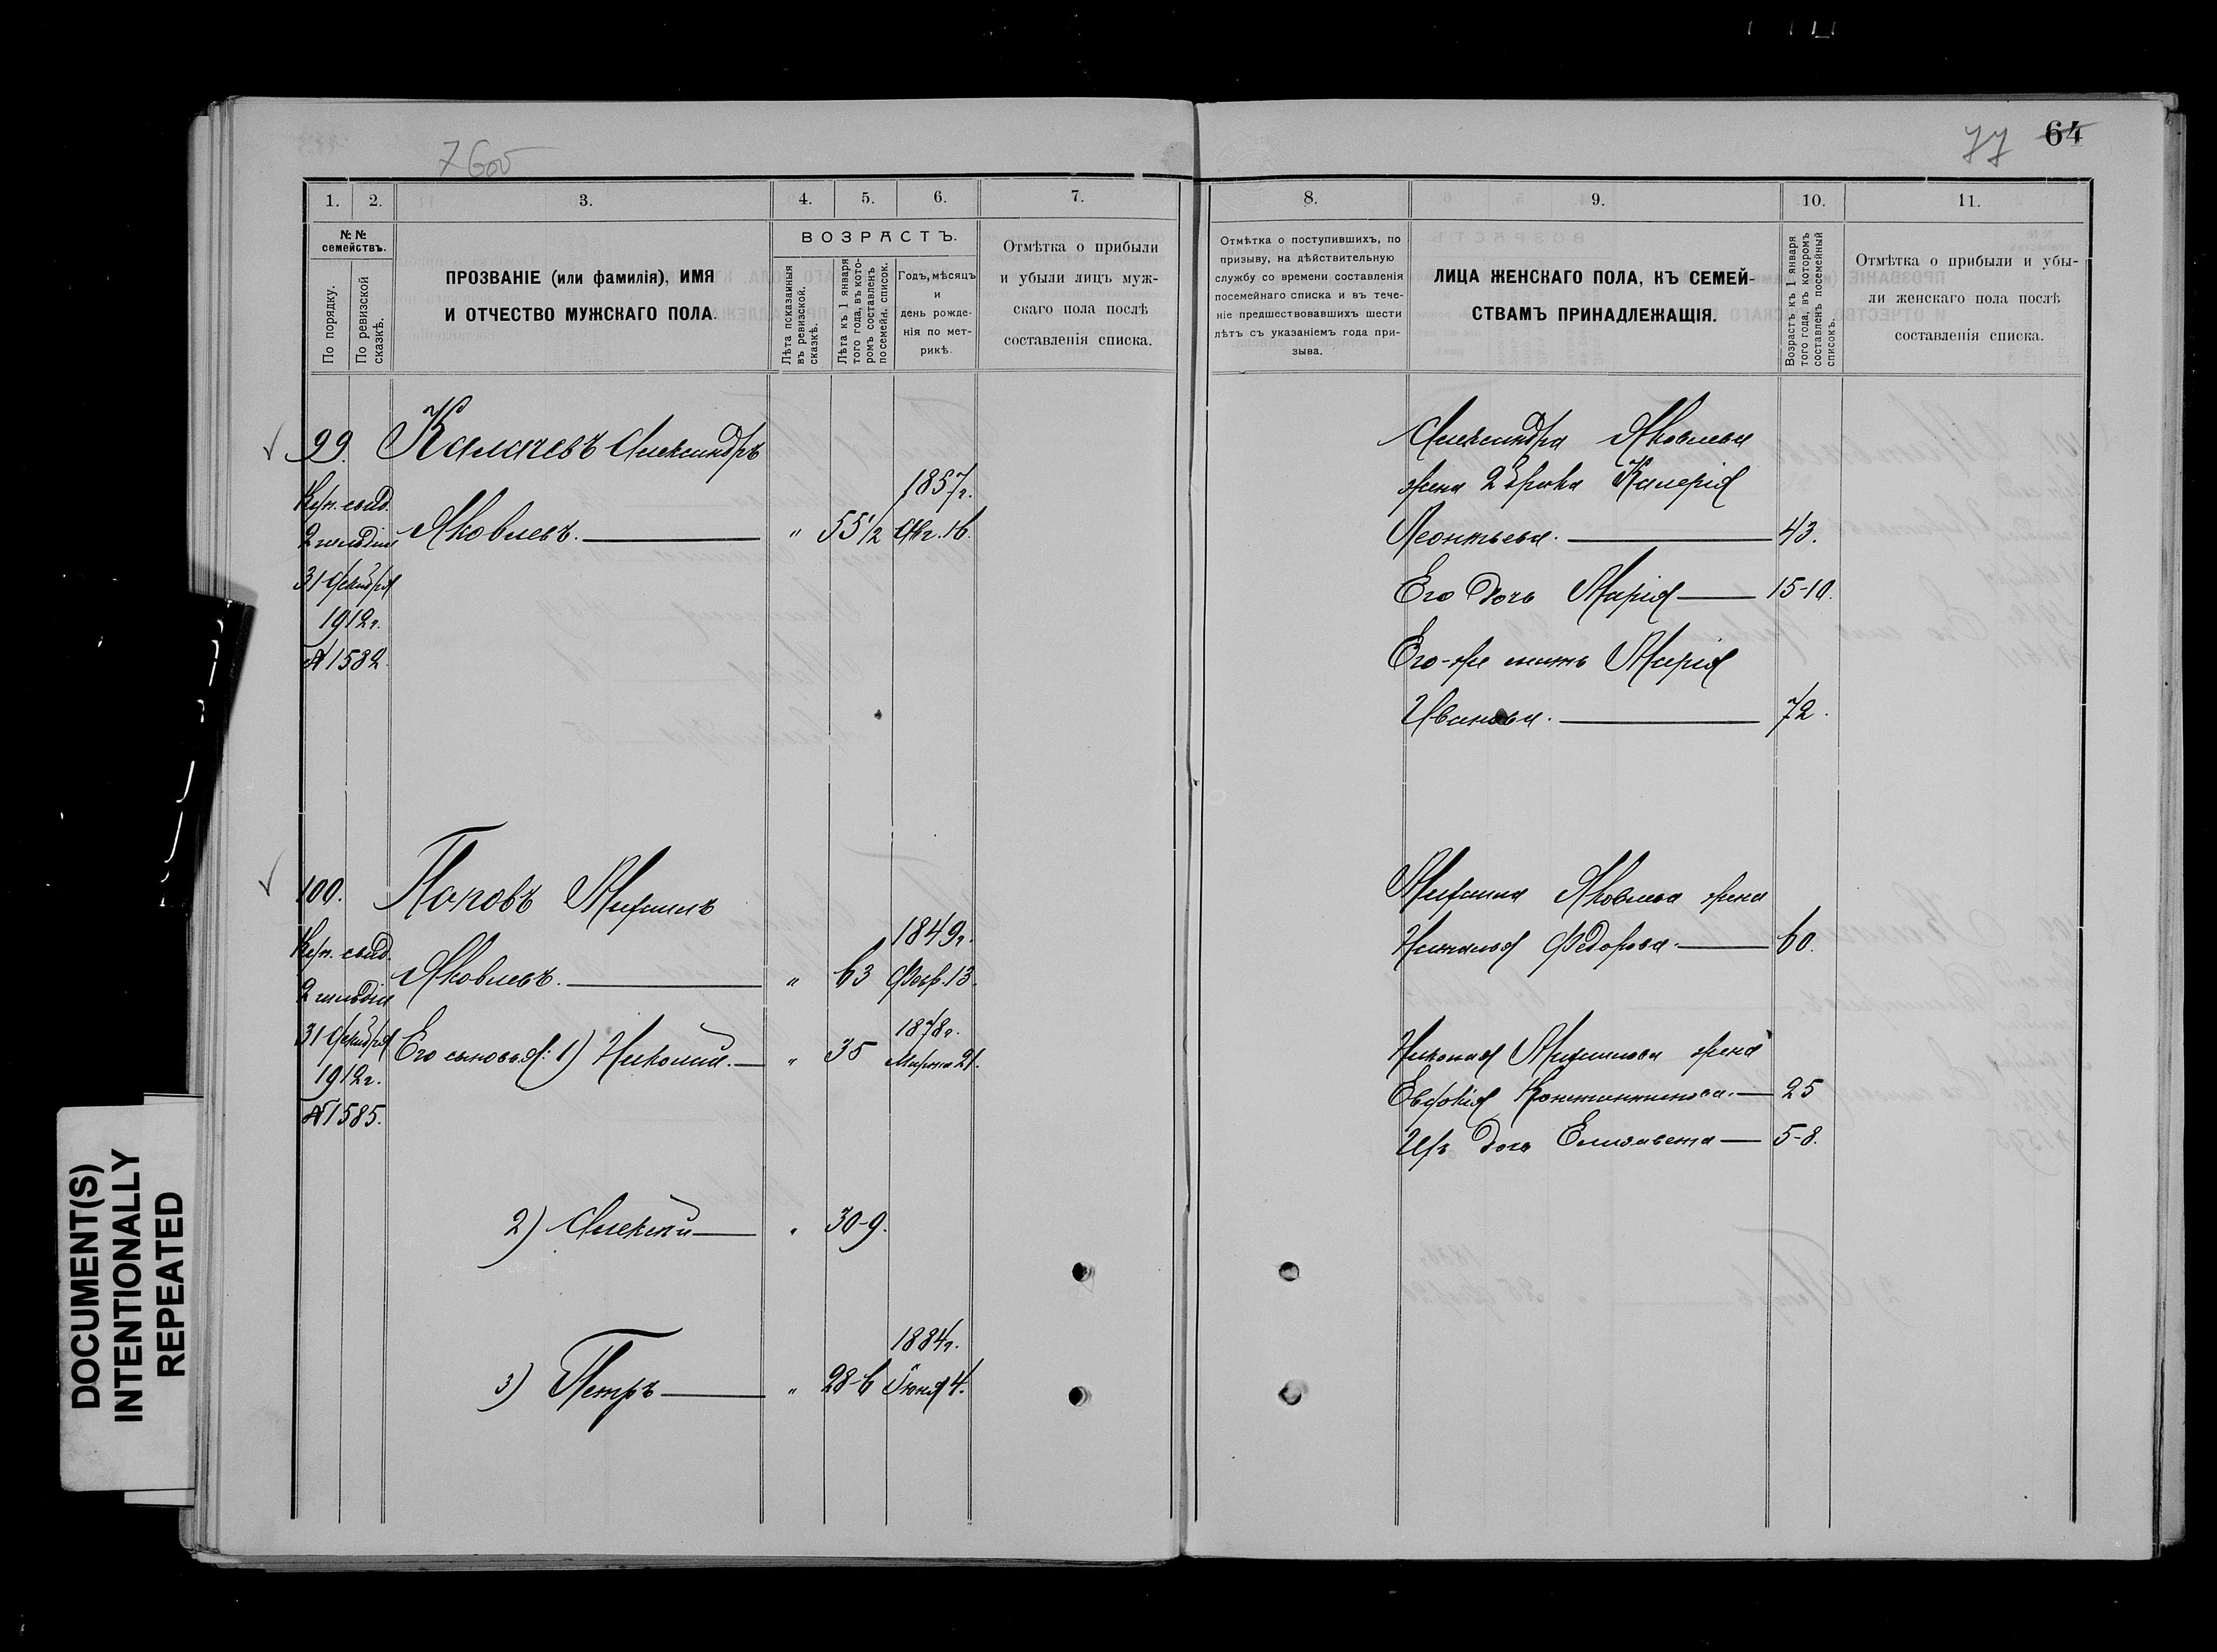 7 Gov
77 64
1. 2. 3. 4. 5. 6. 7.
№ №
семействъ.
По порядку.
По ревизской
сказкѣ.
ПРОЗВАНІЕ (или фамилія), ИМЯ
И ОТЧЕСТВО МУЖСКАГО ПОЛА.
ВОЗРАСТЪ.
Лѣта показанныя
въ ревизской.
сказкѣ.
Лѣта къ 1 января
того года, въ кото-
ромъ составленъ
посемейн. список.
Годъ, мѣсяцъ
и
день рожде-
нія по мет-
рикѣ.
Отмѣтка о прибыли
и убыли лицъ муж-
скаго пола послѣ
составленія списка.
99. Калачевъ Александръ
1857 г.
Куп. свид.
2 гильдіи Яковлевъ. " 55 1/2 Авг. 16.
31 Декабря
1912 г.
№ 1582.
100. Поповъ Михаилъ
1849 г.
Куп. свид.
2 гильдіи Яковлевъ. " 63 Февр. 13.
1878 г.
31 Декабря Его сыновья: 1) Николай. " 35 Марта 21.
1912 г.
№ 1585.
2) Алексѣй " 30-9.
1884 г.
3) Петръ " 28-6 Іюня 4.
8. 9. 10. 11.
Отмѣтка о поступившихъ, по
призыву, на дѣйствительную
службу со времени составленія
посемейнаго списка и въ тече-
ніе предшествовавшихъ шести
лѣтъ съ указаніемъ года при-
зыва.
ЛИЦА ЖЕНСКАГО ПОЛА, КЪ СЕМЕЙ-
СТВАМЪ ПРИНАДЛЕЖАЩІЯ.
Возрастъ къ 1 января
того года, въ которомъ
составленъ посемейный
списокъ.
Отмѣтка о прибыли и убы-
ли женскаго пола послѣ
составленія списка.
Александра Яковлева
жена 2 брака Валерія
Леонтьева. 43.
Его дочь Марія 15-10.
Его-же мать Марія
Иванова. 72.
Михаила Яковлева жена
Наталья Федорова. 60.
Николая Михаилова жена
Евдокія Константинова. 25
Ихъ дочь Елизавета 5-8.
DOCUMENT(S)
INTENTIONALLY
REPEATED